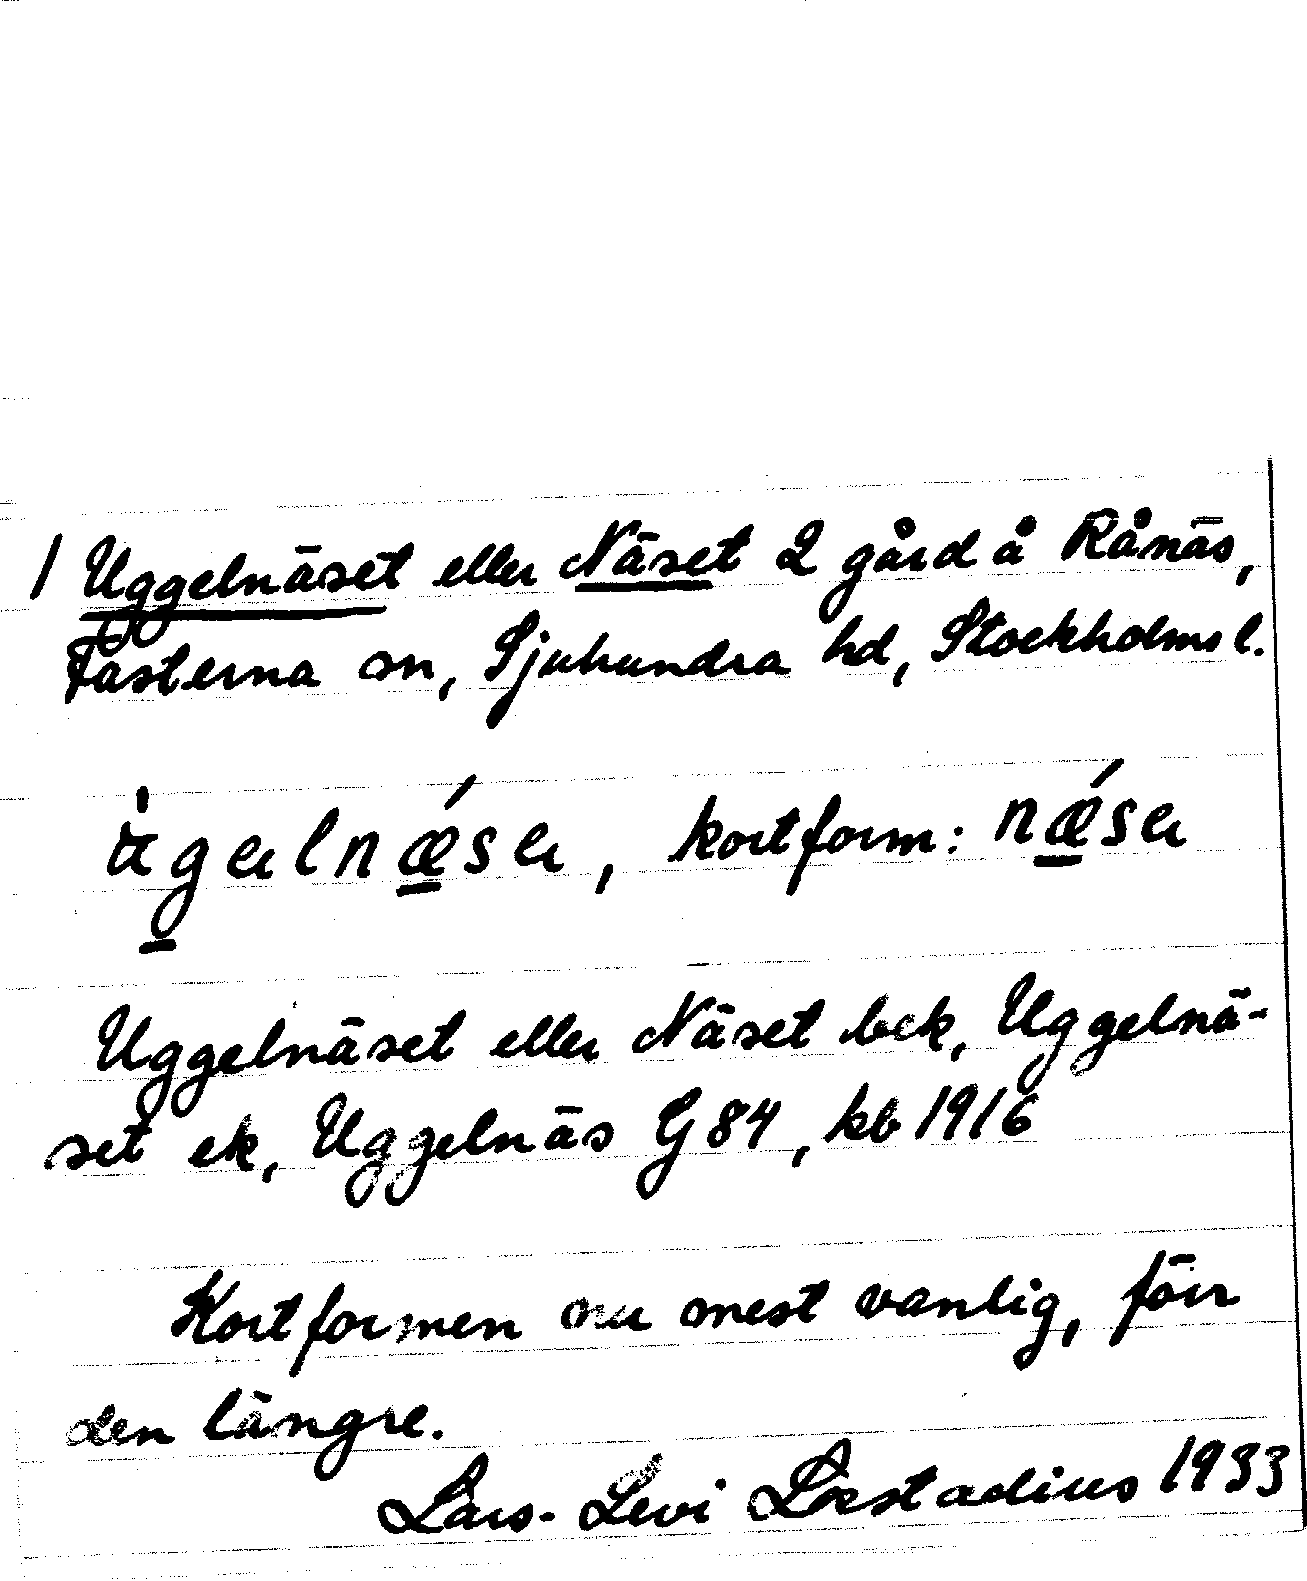 / Uggelnäset eller Näset 2 gård å Rånäs,
Fasterna sn, Sjuhundra hd, Stockholms l.
kortform:
Uggelnäset eller Näset bek, Uggelnä-
set ek, Uggelnäs G 84, kb 1916
Kortformen nu mest vanlig, förr
den längre.
Lars-Levi Læstadius 1933